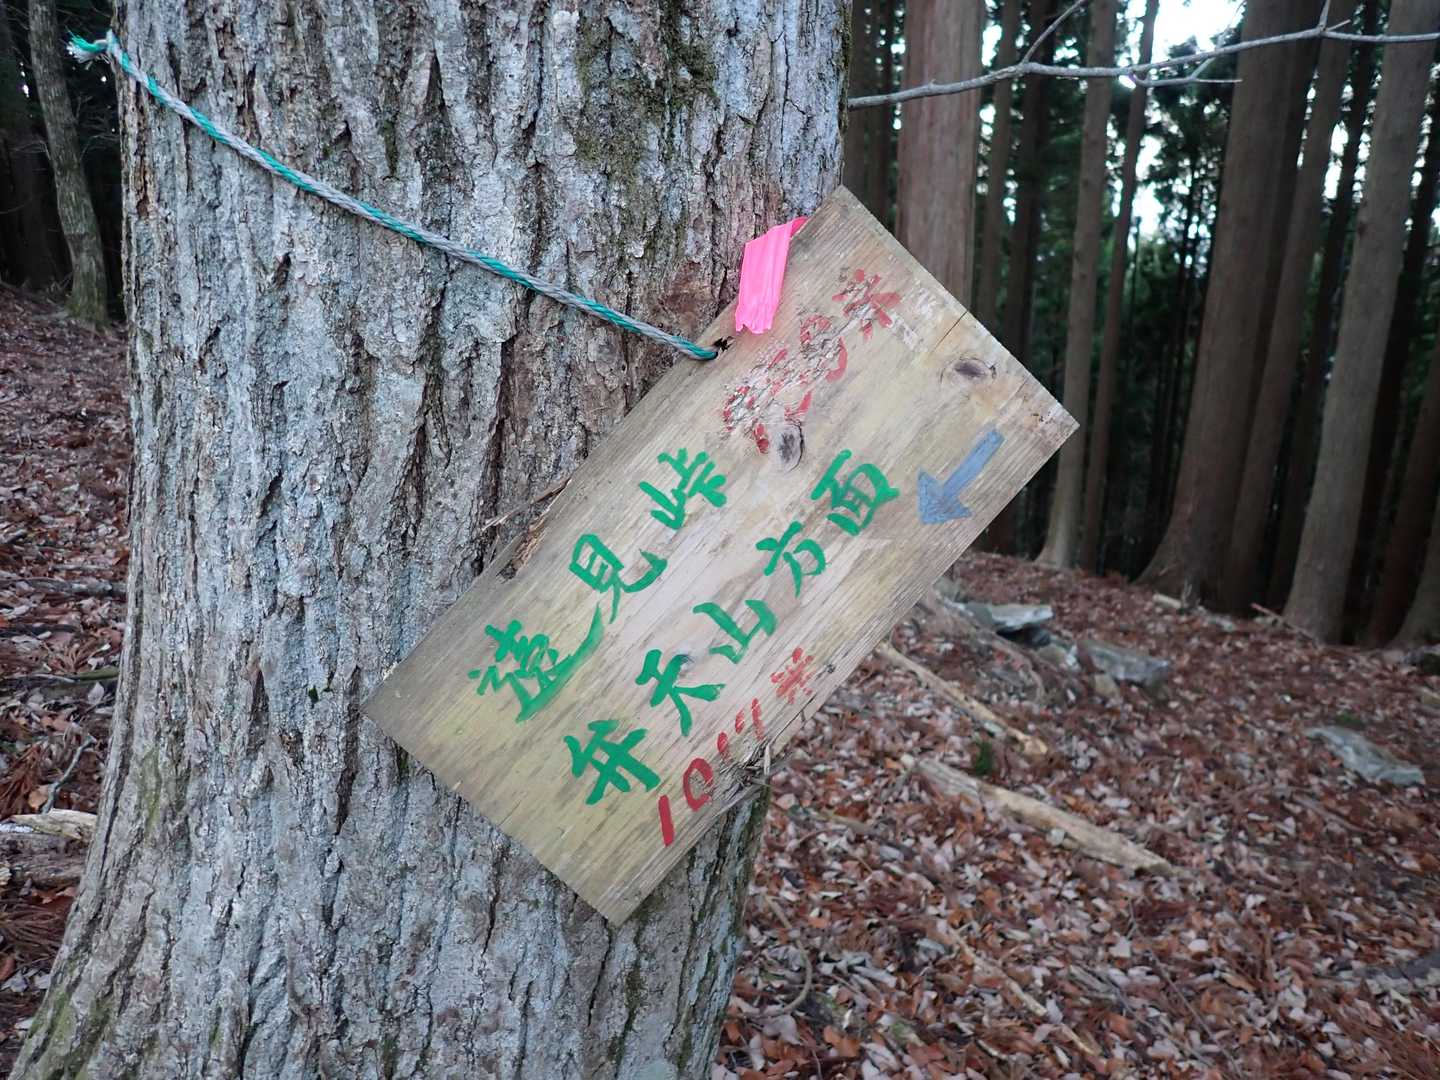 米
遠見峠
弁天山方面
米